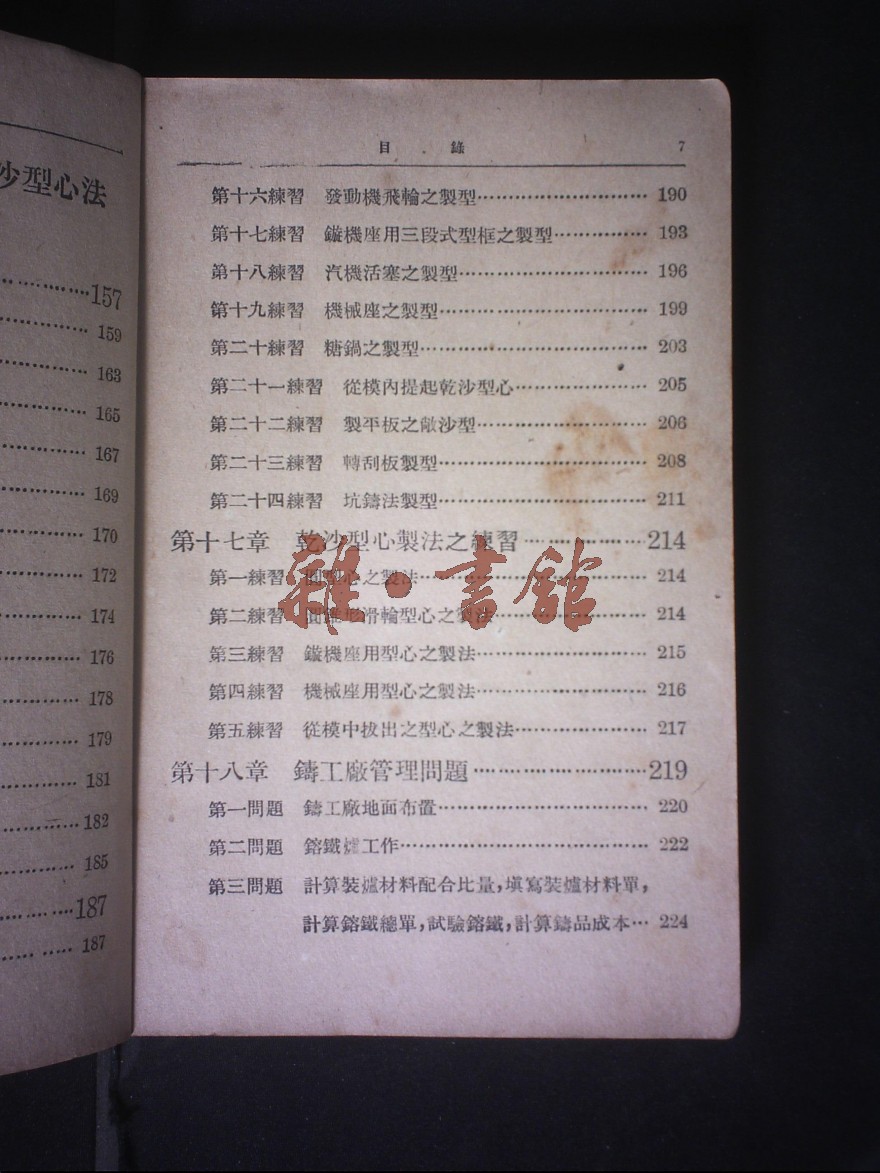 沙型心法
157
159
163
165
167
169
170
172
174
176
178
179
181
182
185
187
187
目 錄 7
第十六練習 發動機飛輪之製型 190
第十七練習 鏇機座用三段式型框之製型 193
第十八練習 汽機活塞之製型 196
第十九練習 機械座之製型 199
第二十練習 糖鍋之製型 203
第二十一練習 從模內提起乾沙型心 205
第二十二練習 製平板之敞沙型 206
第二十三練習 轉刮板製型 208
第二十四練習 坑鑄法製型 211
第十七章 乾沙型心製法之練習 214
第一練習 圓型心之製法 214
第二練習 圓錐形滑輪型心之製法 214
第三練習 鏇機座用型心之製法 215
第四練習 機械座用型心之製法 216
第五練習 從模中拔出之型心之製法 217
第十八章 鑄工廠管理問題 219
第一問題 鑄工廠地面布置 220
第二問題 鎔鐵爐工作 222
第三問題 計算裝爐材料配合比量,填寫裝爐材料單,
計算鎔鐵總單,試驗鎔鐵,計算鑄品成本 224
雜·書館